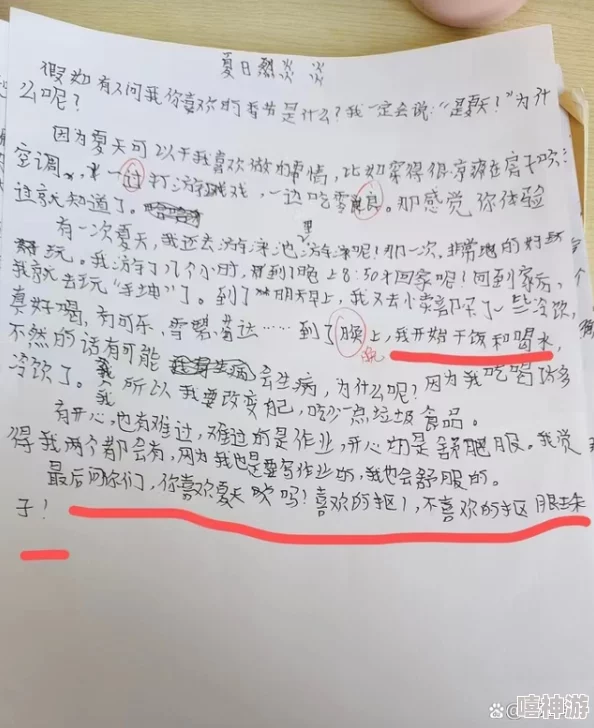 夏日烈火 火
假如有人问我你喜欢的季节是什么?我一定会说:"是夏天!"为什
么呢?
因为夏天可以干我喜欢做的事情,比如穿得很凉爽在房子吹
空调,一边打游戏,一边吃零食。那感觉你体验
过就知道了。
有一次夏天,我还去游泳池里游泳呢!那一次,非常地的好
玩。我游了几个小时,到了晚上8:50才回家呢!回到家后,
我就去玩"手坤"了。到了明天早上,我又去小卖部买了一些冷饮,
真好喝,有可乐、雪碧、芬达……到了晚上,我开始干饭和喝水,
不然的话有可能会生病,为什么呢?因为我吃喝
冷饮了。所以我要改变自己,吃少一点垃圾食品。
有开心,也有难过,难过的是作业,开心的是舒肥服。我觉
得我两个都会有,因为我也是要写作业的,我也会舒服的。
最后问你们,你喜欢夏天吹吗!喜欢的抠1,不喜欢的抠眼珠
子!
嘻神游